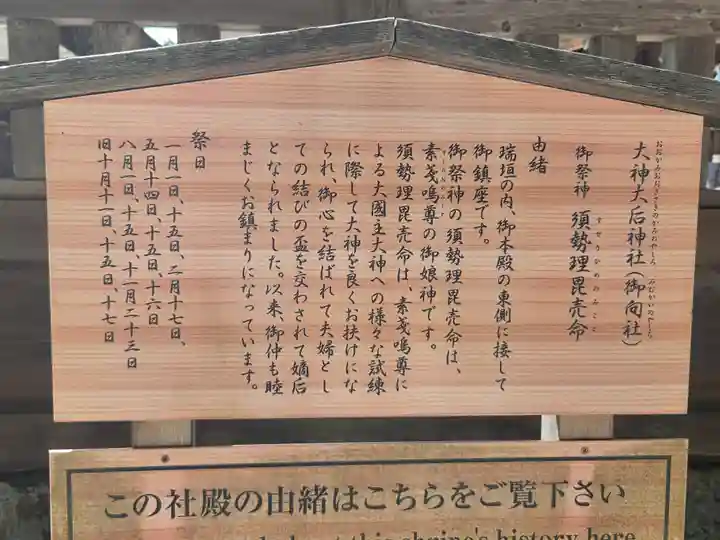 大神大后神社（御向社）
おおかみおおきさきのかみのやしろ
みむかいのやしろ
御祭神 須勢理毘売命
すせりひめのみこと
由緒
瑞垣の内、御本殿の東側に接して
御鎮座です。
御祭神の須勢理毘売命は、
素戔嗚尊の御娘神です。
須勢理毘売命は、素戔嗚尊に
よる大國主大神への様々な試練
に際して大神を良くお扶けにな
られ、御心を結ばれて夫婦とし
ての結びの盃を交わされて嫡后
となられました。以来、御仲も睦
まじくお鎮まりになっています。
祭日
一月一日、十五日、二月十七日、
五月十四日、十五日、十六日
八月一日、十五日、十一月二十三日
旧十月十一日、十五日、十七日
この社殿の由緒はこちらをご覧下さい
at this shrine's history here